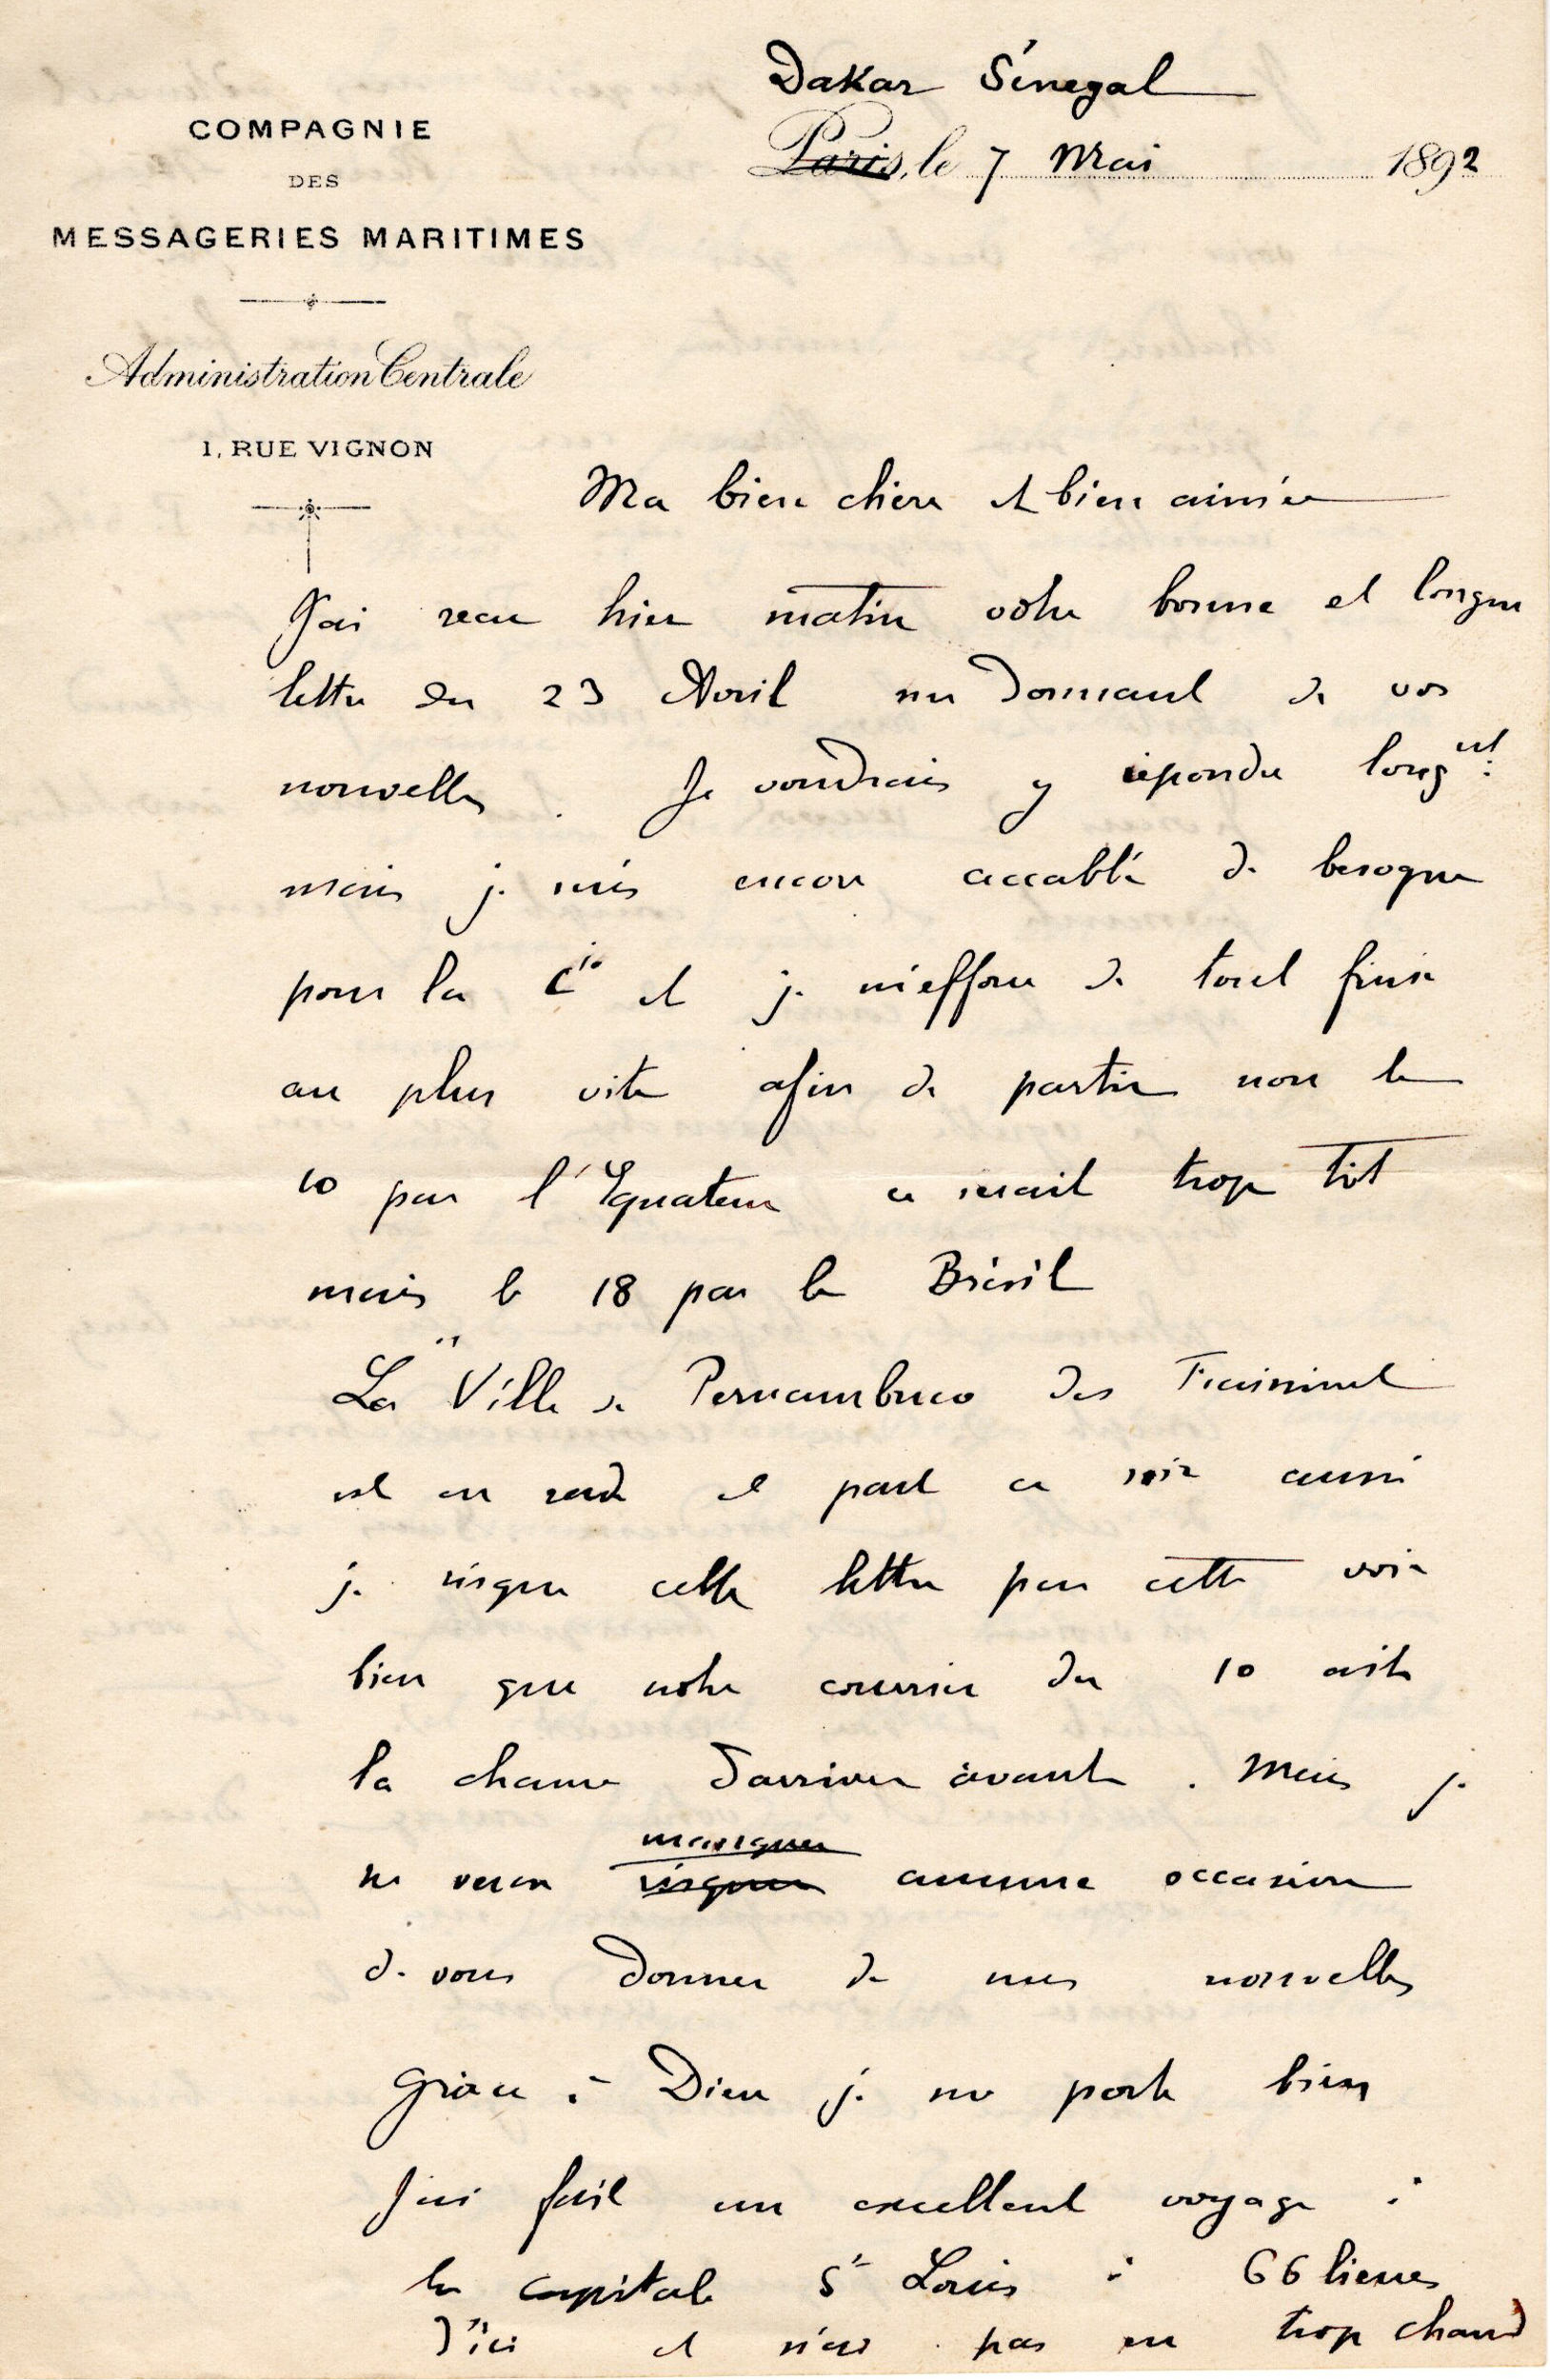 Dakar Sénégal
COMPAGNIE
DES
MESSAGERIES MARITIMES
Administration Centrale
1, RUE VIGNON
Paris, le 7 Mai 1892
Ma bien chère et bien aimée
J'ai reçu hier matin votre bonne et longue
lettre du 23 Avril me donnant de vos
nouvelles. Je voudrais y répondre long.nt
mais je suis encore accablé de besogne
pour la Cie et je m'efforce de tout finir
au plus vite afin de partir non le
10 par l'Equateur ce serait trop tôt
mais le 18 par le Brésil
La "Ville de Pernambuco des Fraissinet
est en rade et part ce soir aussi
je risque cette lettre par cette voie
bien que notre courrier du 10 ait
la chance d'arriver avant. Mais je
ne veux manquer
risquer aucune occasion
de vous donner de mes nouvelles
Grâce à Dieu je me porte bien
J'ai fait un excellent voyage à
la capitale St Louis à 66 lieues
d'ici et n'ai pas eu trop chaud